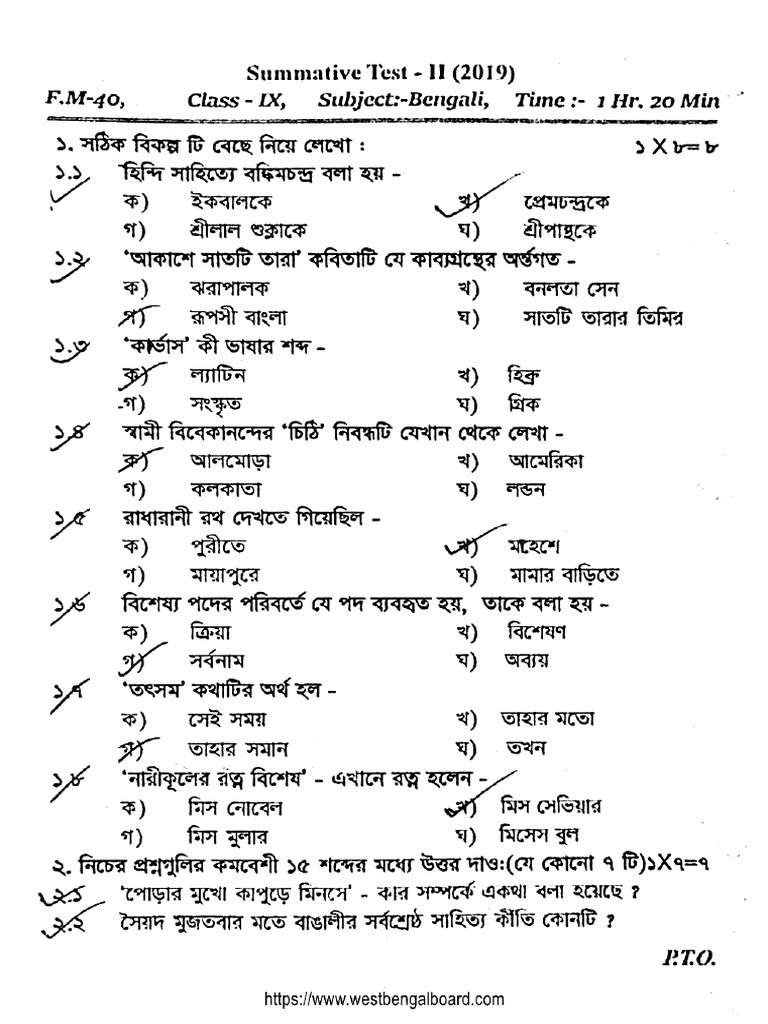 Summative Test - II (2019)
F.M-40, Class - IX, Subject:-Bengali, Time :- 1 Hr. 20 Min
১. সঠিক বিকল্প টি বেছে নিয়ে লেখো : ১ X ৮= ৮
১.১ হিন্দি সাহিত্যে বঙ্কিমচন্দ্র বলা হয় -
ক) ইকবালকে খ) প্রেমচন্দ্রকে
গ) শ্রীলাল শুক্লাকে ঘ) শ্রীপান্থকে
১.২ ‘আকাশে সাতটি তারা’ কবিতাটি যে কাব্যগ্রন্থের অর্ন্তগত -
ক) ঝরাপালক খ) বনলতা সেন
গ) রূপসী বাংলা ঘ) সাতটি তারার তিমির
১.৩ ‘কার্ভাস’ কী ভাষার শব্দ -
ক) ল্যাটিন খ) হিব্রু
গ) সংস্কৃত ঘ) গ্রিক
১.৪ স্বামী বিবেকানন্দের ‘চিঠি’ নিবন্ধটি যেখান থেকে লেখা -
ক) আলমোড়া খ) আমেরিকা
গ) কলকাতা ঘ) লন্ডন
১.৫ রাধারানী রথ দেখতে গিয়েছিল -
ক) পুরীতে খ) মাহেশে
গ) মায়াপুরে ঘ) মামার বাড়িতে
১.৬ বিশেষ্য পদের পরিবর্তে যে পদ ব্যবহৃত হয়, তাকে বলা হয় -
ক) ক্রিয়া খ) বিশেষণ
গ) সর্বনাম ঘ) অব্যয়
১.৭ ‘তৎসম’ কথাটির অর্থ হল -
ক) সেই সময় খ) তাহার মতো
গ) তাহার সমান ঘ) তখন
১.৮ ‘নারীকূলের রত্ন বিশেষ’ - এখানে রত্ন হলেন -
ক) মিস নোবেল খ) মিস সেভিয়ার
গ) মিস মুলার ঘ) মিসেস বুল
২. নিচের প্রশ্নগুলির কমবেশী ১৫ শব্দের মধ্যে উত্তর দাও:(যে কোনো ৭ টি)১X৭=৭
২.১ ‘পোড়ার মুখো কাপুড়ে মিনসে’ - কার সম্পর্কে একথা বলা হয়েছে ?
২.২ সৈয়দ মুজতবার মতে বাঙালীর সর্বশ্রেষ্ঠ সাহিত্য কীর্তি কোনটি ?
P.T.O.
https://www.westbengalboard.com